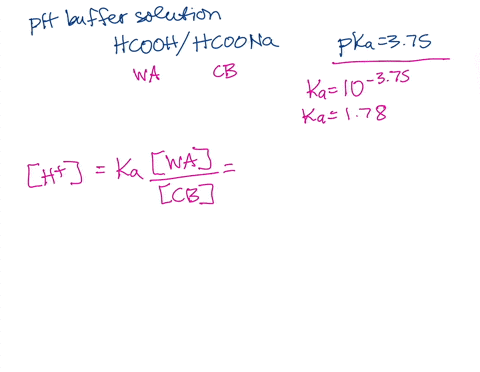 pH buffer solution
HCOOH/HCOONa
WA CB
pKa=3.75
Ka=10^-3.75
Ka=1.78
[H+] = Ka [WA]/[CB] =